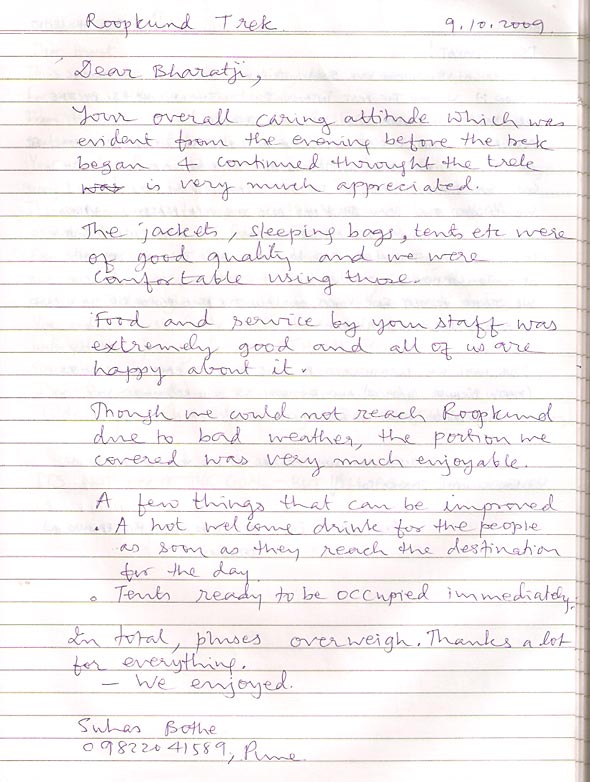 Roopkund Trek 9.10.2009
Dear Bharatji,
Your overall caring attitude which was
evident from the evening before the trek
began & continued throught the trek
was is very much appreciated.
The jackets, sleeping bags, tents etc were
of good quality and we were
comfortable using those.
Food and service by your staff was
extremely good and all of us are
happy about it.
Though we could not reach Roopkund
due to bad weather, the portion we
covered was very much enjoyable.
A few things that can be improved
. A hot welcome drink for the people
as soon as they reach the destination
for the day.
. Tents ready to be occupied immediately.
In total, pluses overweigh. Thanks a lot
for everything.
– We enjoyed.
Suhas Bothe
09822041589, Pune.